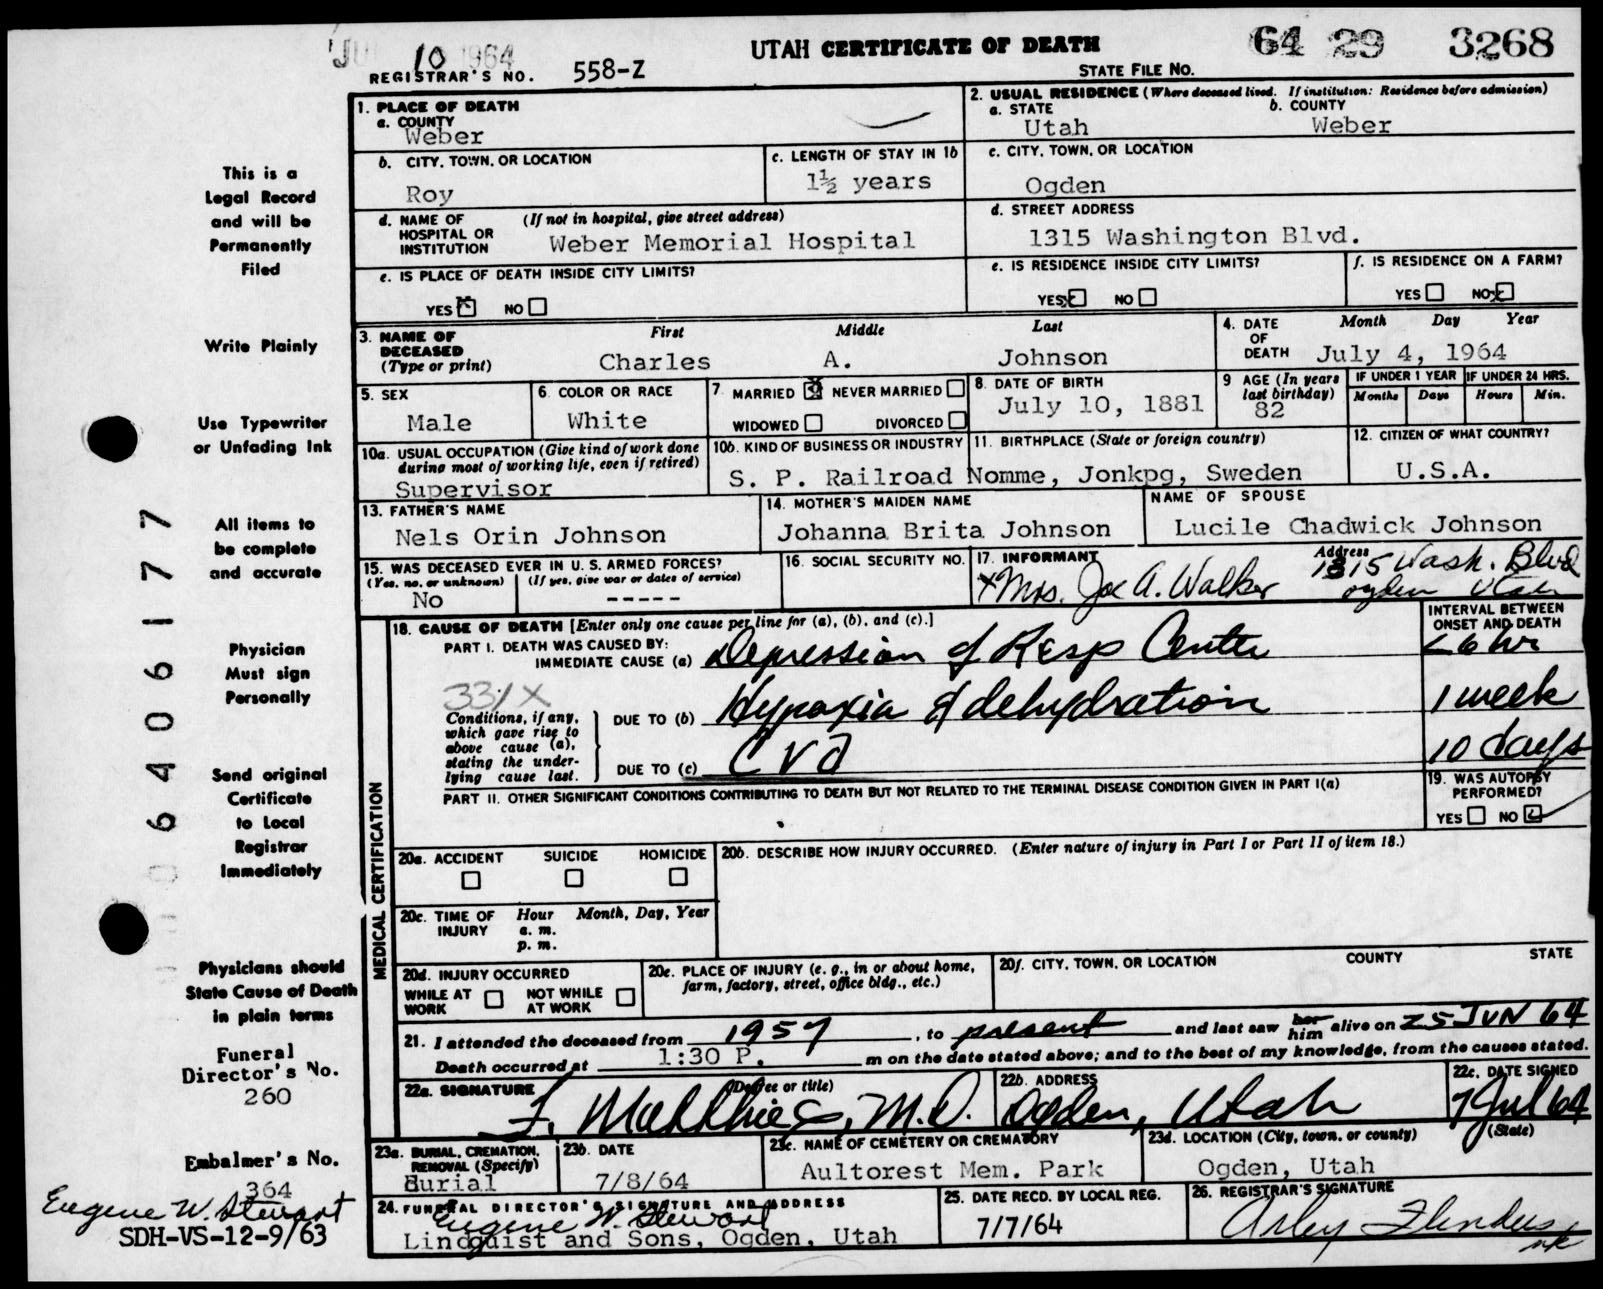 10 1964
UTAH CERTIFICATE OF DEATH
64 29 3268
REGISTRAR'S NO. 558-Z
STATE FILE NO.
1. PLACE OF DEATH
a. COUNTY
Weber
2. USUAL RESIDENCE (Where deceased lived. If institution: Residence before admission)
a. STATE b. COUNTY
Utah Weber
b. CITY, TOWN, OR LOCATION
Roy
c. LENGTH OF STAY IN 1b
1½ years
c. CITY, TOWN, OR LOCATION
Ogden
d. NAME OF HOSPITAL OR INSTITUTION (If not in hospital, give street address)
Weber Memorial Hospital
d. STREET ADDRESS
1315 Washington Blvd.
e. IS PLACE OF DEATH INSIDE CITY LIMITS?
YES NO
e. IS RESIDENCE INSIDE CITY LIMITS?
YES NO
f. IS RESIDENCE ON A FARM?
YES NO
3. NAME OF DECEASED (Type or print)
First Middle Last
Charles A. Johnson
4. DATE OF DEATH
Month Day Year
July 4, 1964
5. SEX
Male
6. COLOR OR RACE
White
7. MARRIED NEVER MARRIED
WIDOWED DIVORCED
8. DATE OF BIRTH
July 10, 1881
9 AGE (In years last birthday)
82
IF UNDER 1 YEAR IF UNDER 24 HRS.
Months Days Hours Min.
10a. USUAL OCCUPATION (Give kind of work done during most of working life, even if retired)
Supervisor
10b. KIND OF BUSINESS OR INDUSTRY
S. P. Railroad
11. BIRTHPLACE (State or foreign country)
Nomme, Jonkpg, Sweden
12. CITIZEN OF WHAT COUNTRY?
U.S.A.
13. FATHER'S NAME
Nels Orin Johnson
14. MOTHER'S MAIDEN NAME
Johanna Brita Johnson
NAME OF SPOUSE
Lucile Chadwick Johnson
15. WAS DECEASED EVER IN U. S. ARMED FORCES?
(Yes, no, or unknown) (If yes, give war or dates of service)
No -----
16. SOCIAL SECURITY NO.
17. INFORMANT Address
x Mrs. Joe A. Walker 1315 Wash. Blvd
Ogden Utah
18. CAUSE OF DEATH [Enter only one cause per line for (a), (b), and (c).]
INTERVAL BETWEEN ONSET AND DEATH
PART I. DEATH WAS CAUSED BY:
IMMEDIATE CAUSE (a) Depression of Resp Center <6 hr
331X
Conditions, if any, which gave rise to above cause (a), stating the underlying cause last.
DUE TO (b) Hypoxia & dehydration 1 week
DUE TO (c) CVA 10 days
PART II. OTHER SIGNIFICANT CONDITIONS CONTRIBUTING TO DEATH BUT NOT RELATED TO THE TERMINAL DISEASE CONDITION GIVEN IN PART I(a)
19. WAS AUTOPSY PERFORMED?
YES NO
MEDICAL CERTIFICATION
20a. ACCIDENT SUICIDE HOMICIDE
20b. DESCRIBE HOW INJURY OCCURRED. (Enter nature of injury in Part I or Part II of item 18.)
20c. TIME OF INJURY Hour Month, Day, Year
a. m.
p. m.
20d. INJURY OCCURRED
WHILE AT WORK NOT WHILE AT WORK
20e. PLACE OF INJURY (e. g., in or about home, farm, factory, street, office bldg., etc.)
20f. CITY, TOWN, OR LOCATION COUNTY STATE
21. I attended the deceased from 1957, to present and last saw her him alive on 25 JUN 64
Death occurred at 1:30 P. m on the date stated above; and to the best of my knowledge, from the causes stated.
22a. SIGNATURE (Degree or title)
F. Matthies, M.D.
22b. ADDRESS
Ogden, Utah
22c. DATE SIGNED
7 Jul 64
23a. BURIAL, CREMATION, REMOVAL (Specify)
Burial
23b. DATE
7/8/64
23c. NAME OF CEMETERY OR CREMATORY
Aultorest Mem. Park
23d. LOCATION (City, town, or county) (State)
Ogden, Utah
24. FUNERAL DIRECTOR'S SIGNATURE AND ADDRESS
Eugene W. Stewart
Lindquist and Sons, Ogden, Utah
25. DATE RECD. BY LOCAL REG.
7/7/64
26. REGISTRAR'S SIGNATURE
This is a
Legal Record
and will be
Permanently
Filed
Write Plainly
Use Typewriter
or Unfading Ink
All items to
be complete
and accurate
Physician
Must sign
Personally
Send original
Certificate
to Local
Registrar
Immediately
Physicians should
State Cause of Death
in plain terms
Funeral
Director's No.
260
Embalmer's No.
364
Eugene W. Stewart
SDH-VS-12-9/63
6406177